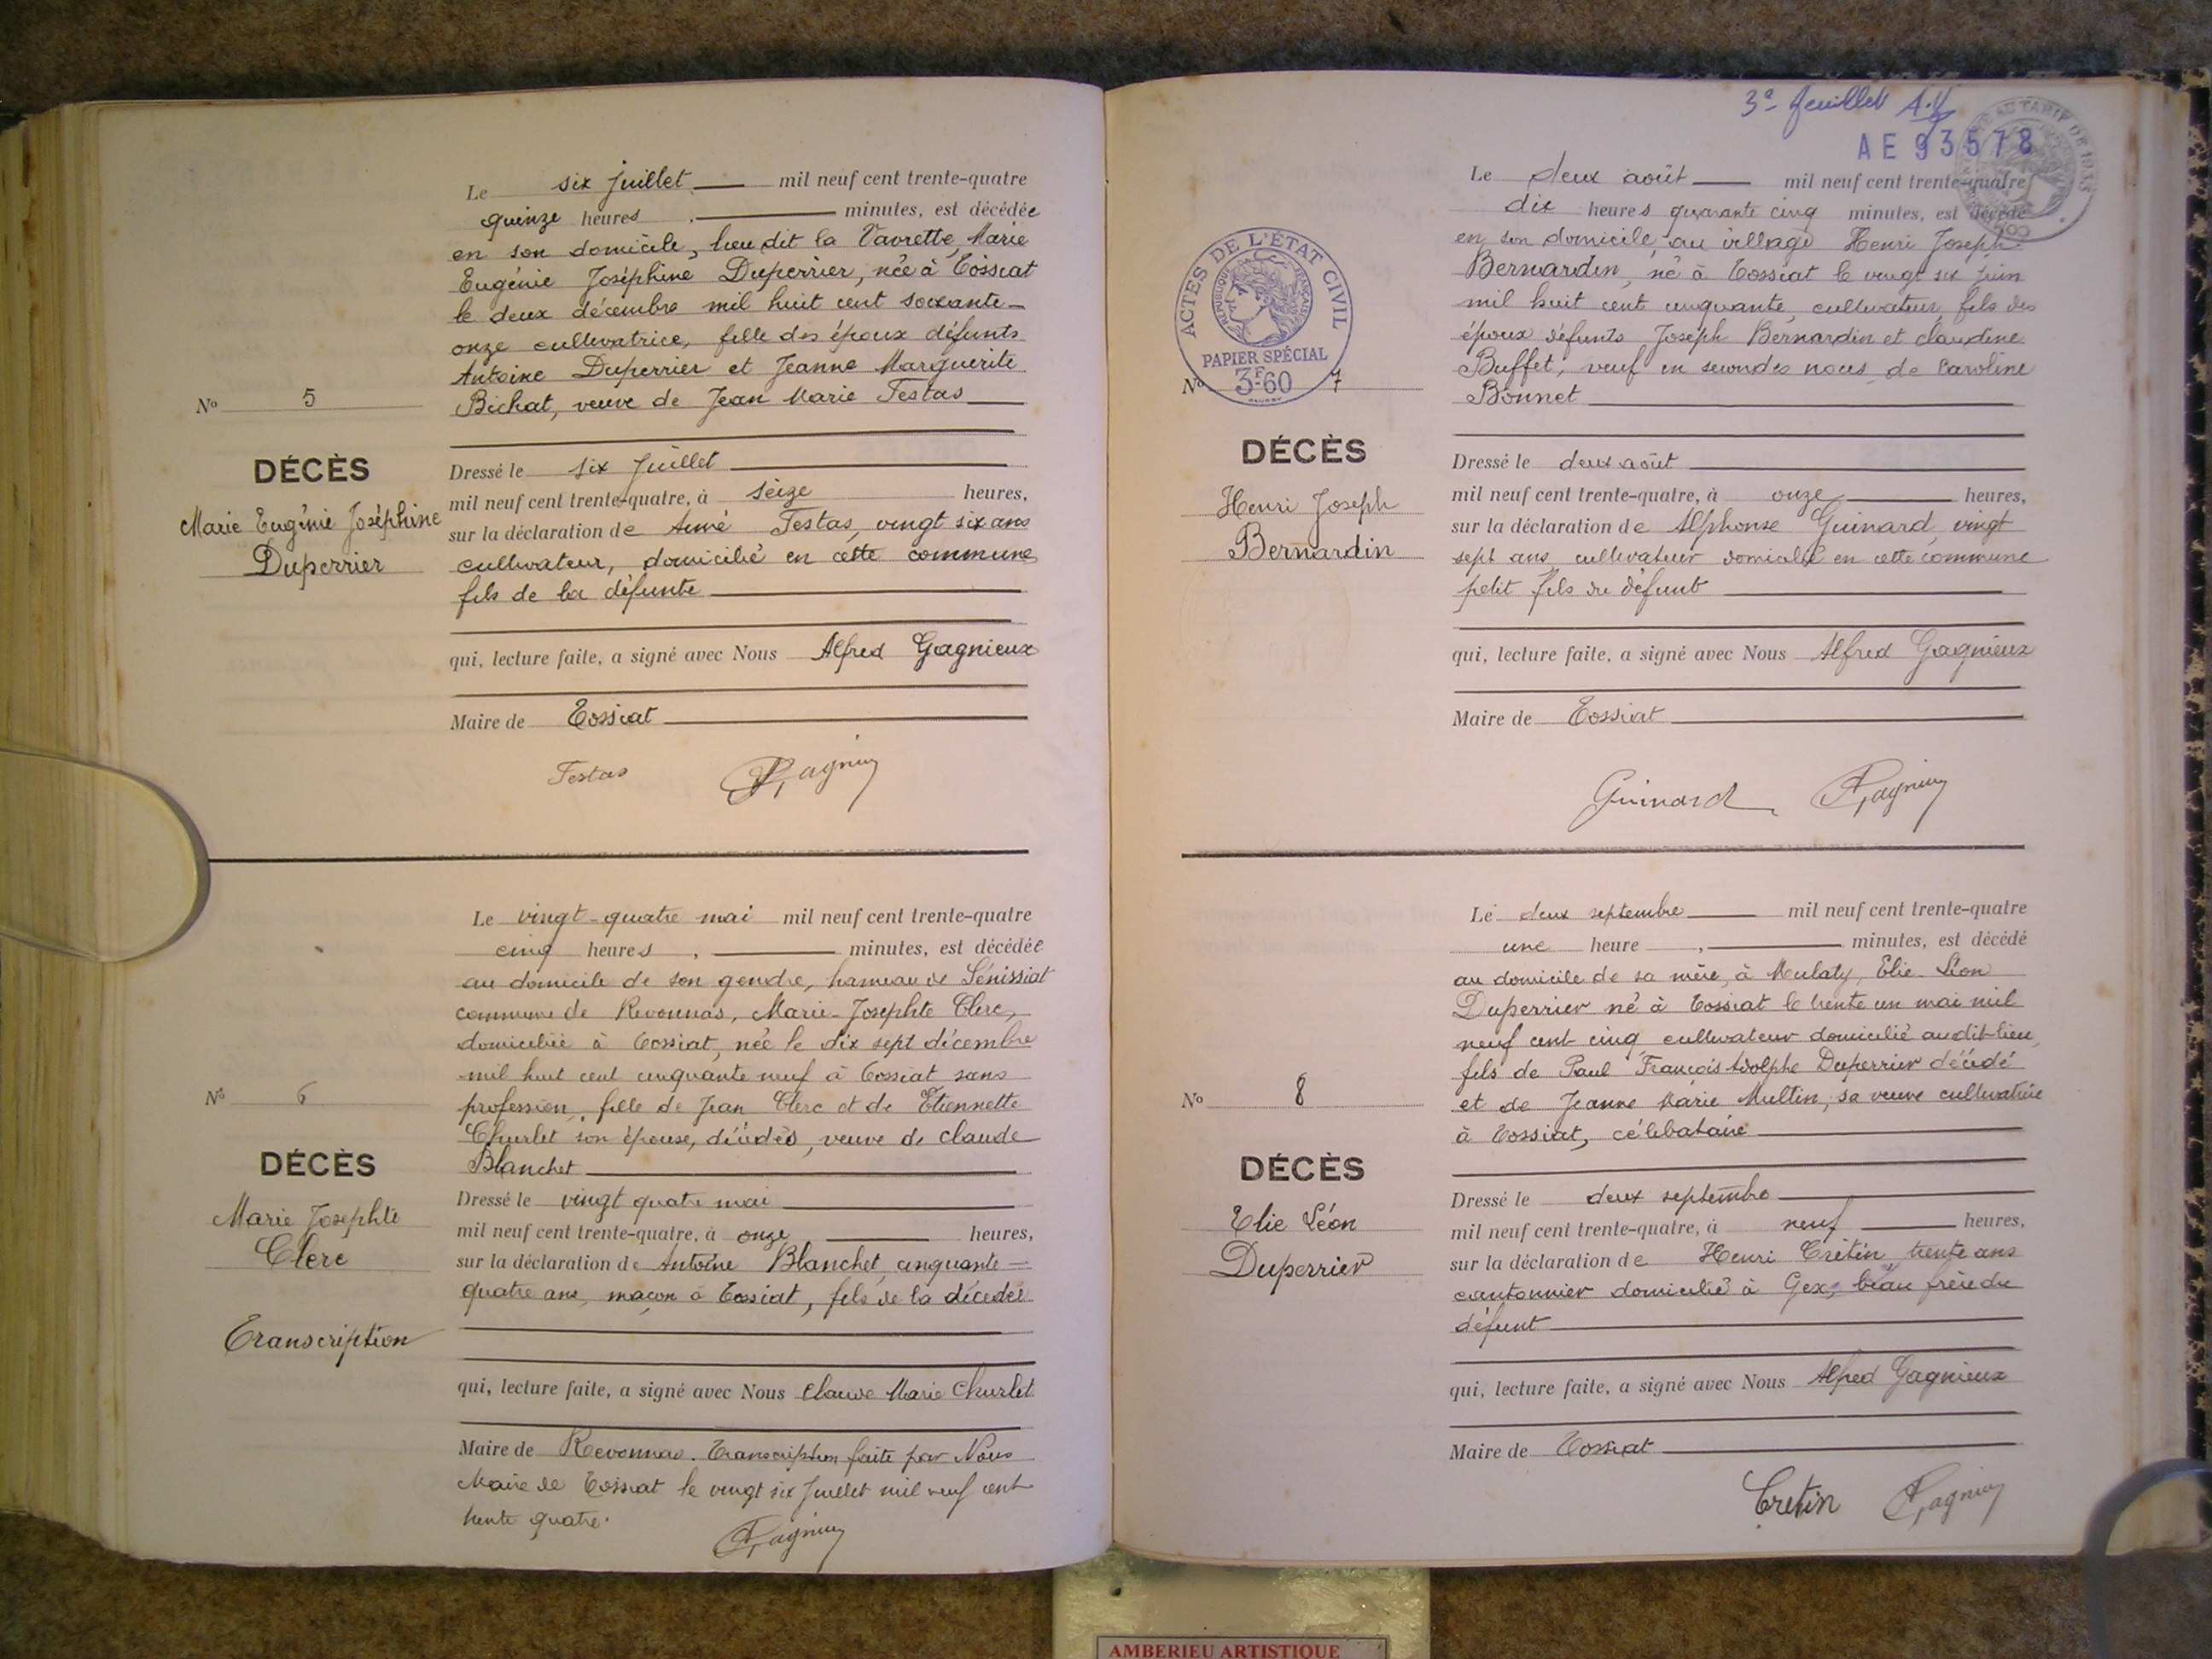 Le six Juillet mil neuf cent trente-quatre
quinze heures , minutes, est décédée
en son domicile, lieu dit la Vavrette, Marie
Eugénie Joséphine Duperrier, née à Tossiat
le deux décembre mil huit cent soixante-
onze cultivatrice, fille des époux défunts
Antoine Duperrier et Jeanne Marguerite
Bichat, veuve de Jean Marie Testas
No 5
DÉCÈS
Marie Eugénie Joséphine
Duperrier
Dressé le six Juillet
mil neuf cent trente-quatre, à seize heures,
sur la déclaration de Aimé Testas, vingt six ans
cultivateur, domicilié en cette commune
fils de la défunte
qui, lecture faite, a signé avec Nous Alfred Gagnieux
Maire de Tossiat
Testas
Le vingt-quatre mai mil neuf cent trente-quatre
cinq heures , minutes, est décédée
au domicile de son gendre, hameau de Sénissiat
commune de Revonnas, Marie-Josephte Clerc,
domiciliée à Tossiat, née le dix sept décembre
mil huit cent cinquante neuf à Tossiat sans
profession, fille de Jean Clerc et de Etiennette
Churlet son épouse, décédés, veuve de Claude
Blanchet
No 6
DÉCÈS
Marie Josephte
Clerc
Transcription
Dressé le vingt quatre mai
mil neuf cent trente-quatre, à onze heures,
sur la déclaration de Antoine Blanchet, cinquante-
quatre ans, maçon à Tossiat, fils de la décédée
qui, lecture faite, a signé avec Nous Claude Marie Churlet
Maire de Revonnas. Transcription faite par Nous
Maire de Tossiat le vingt six Juillet mil neuf cent
trente quatre.
3e feuillet
AE 93578
Le deux août mil neuf cent trente-quatre
dix heures quarante cinq minutes, est décédé
en son domicile au village Henri Joseph
Bernardin, né à Tossiat le vingt six juin
mil huit cent cinquante, cultivateur, fils des
époux défunts Joseph Bernardin et Claudine
Buffet, veuf en secondes noces de Caroline
Bonnet
ACTES DE L'ÉTAT CIVIL
RÉPUBLIQUE FRANÇAISE
PAPIER SPÉCIAL
3F60
No 7
DÉCÈS
Henri Joseph
Bernardin
Dressé le deux août
mil neuf cent trente-quatre, à onze heures,
sur la déclaration de Alphonse Guinard, vingt
sept ans cultivateur domicilié en cette commune
petit fils du défunt
qui, lecture faite, a signé avec Nous Alfred Gagnieux
Maire de Tossiat
Guinard
Le deux septembre mil neuf cent trente-quatre
une heure , minutes, est décédé
au domicile de sa mère, à Mulaty, Elie Léon
Duperrier né à Tossiat le trente un mai mil
neuf cent cinq cultivateur domicilié audit-lieu,
fils de Paul François Adolphe Duperrier décédé
et de Jeanne Marie Multin, sa veuve cultivatrice
à Tossiat, célibataire
No 8
DÉCÈS
Elie Léon
Duperrier
Dressé le deux septembre
mil neuf cent trente-quatre, à neuf heures,
sur la déclaration de Henri Crétin, trente ans
cantonnier domicilié à Gex, beau frère du
défunt
qui, lecture faite, a signé avec Nous Alfred Gagnieux
Maire de Tossiat
Cretin
AMBERIEU ARTISTIQUE